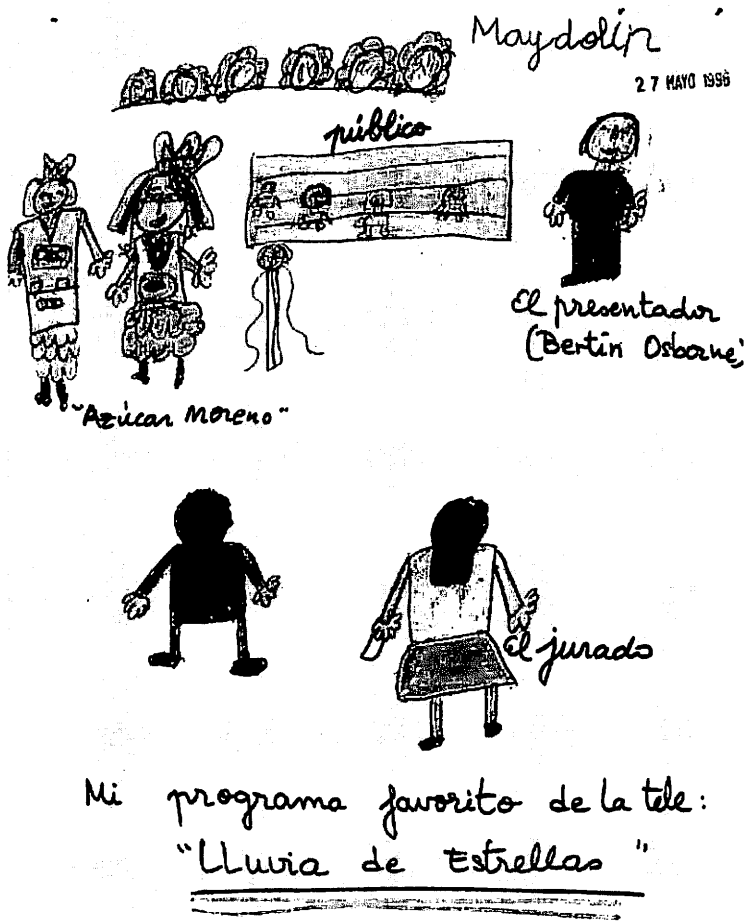 Maydolin
27 MAYO 1996
público
El presentador
(Bertín Osborne)
"Azúcar Moreno"
El jurado
Mi programa favorito de la tele:
"LLuvia de Estrellas"